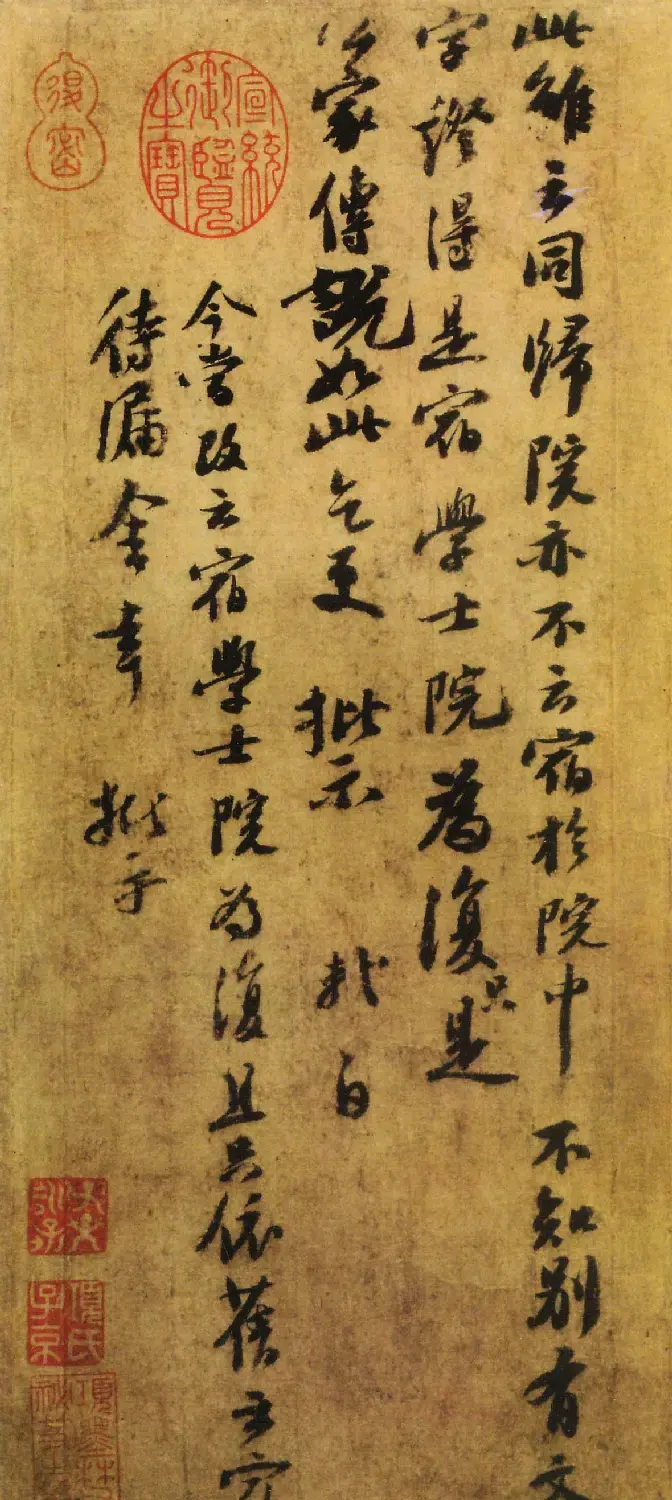 此雖云同歸院亦不云宿於院中不知別有文
字證得是宿學士院為復只是
公家傳說如此乞更批示 軾白
今當改云宿學士院為復且只依舊云宿
待漏舍幸批示
宣統御覽之寶
項氏子京